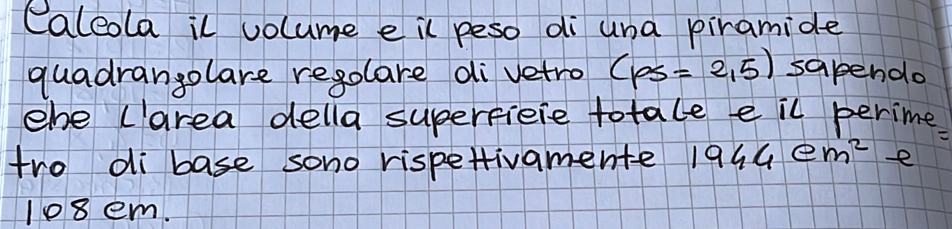 Calcola il volume e il peso di una piramide
quadrangolare regolare di vetro (ps = 2,5) sapendo
che l'area della superficie totale e il perime=
tro di base sono rispettivamente 1944 cm² e
108 cm.